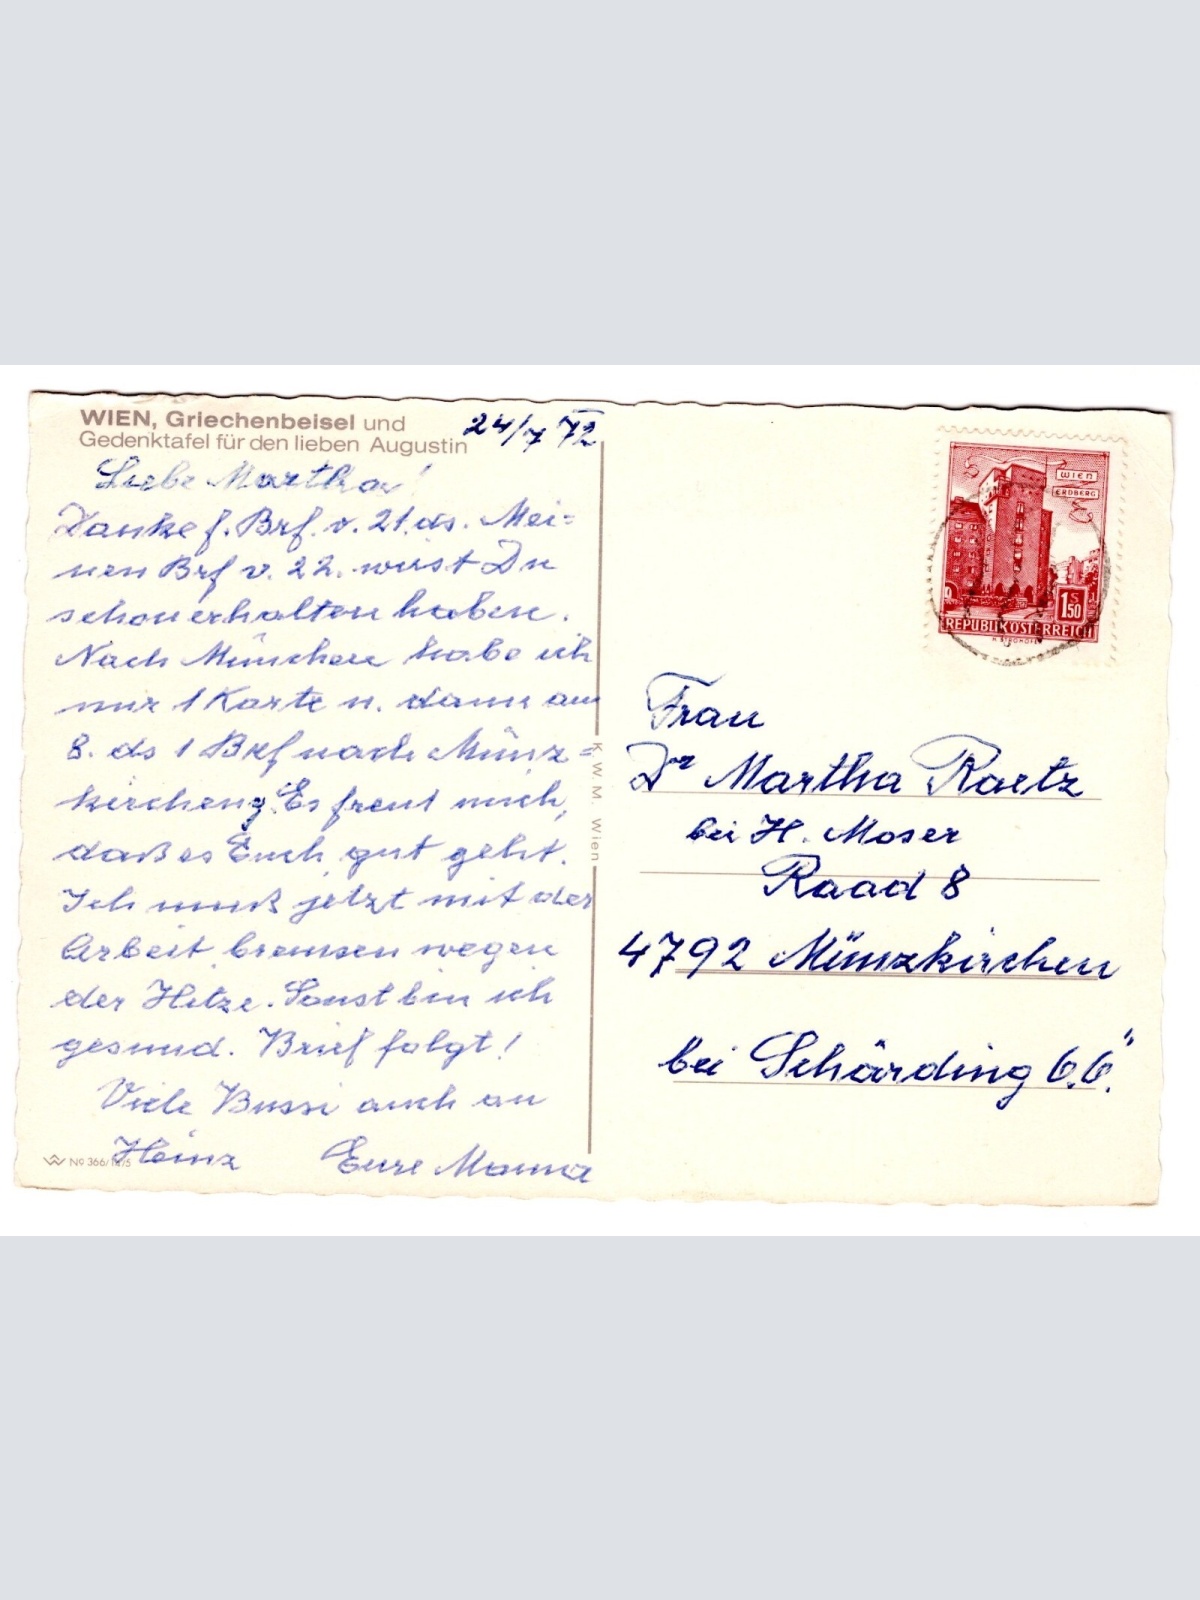 WIEN, Griechenbeisel und
Gedenktafel für den lieben Augustin
24/7 72
Liebe Martha!
Danke f. Brf. v. 21. ds. Mei=
nen Brf v. 22. wirst Du
schon erhalten haben.
Nach München habe ich
nur 1 Karte u. dann am
8. ds 1 Brf nach Münz=
kirchen ges. Es freut mich,
daß es Euch gut geht.
Ich muß jetzt mit der
Arbeit bremsen wegen
der Hitze. Sonst bin ich
gesund. Brief folgt!
Viele Bussi auch an
Heinz Eure Mama
№ 366/
K. W. M. Wien
WIEN
ERDBERG
1 S 50
REPUBLIK ÖSTERREICH
Frau
Dr Martha Raetz
bei H. Moser
Raad 8
4792 Münzkirchen
bei Schärding O.Ö.